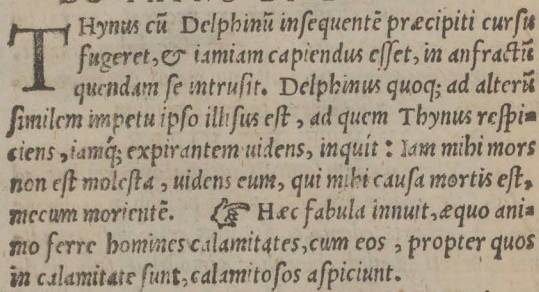 THynus cũ Delphinũ insequentẽ præcipiti cursu
fugeret, & iamiam capiendus esset, in anfractũ
quendam se intrusit. Delphinus quoq; ad alterũ
similem impetu ipso illisus est, ad quem Thynus respi-
ciens, iamq́; expirantem uidens, inquit: Iam mihi mors
non est molesta, uidens eum, qui mihi causa mortis est,
mecum morientẽ. ☞ Hæc fabula innuit, æquo ani-
mo ferre homines calamitates, cum eos, propter quos
in calamitate sunt, calamitosos aspiciunt.